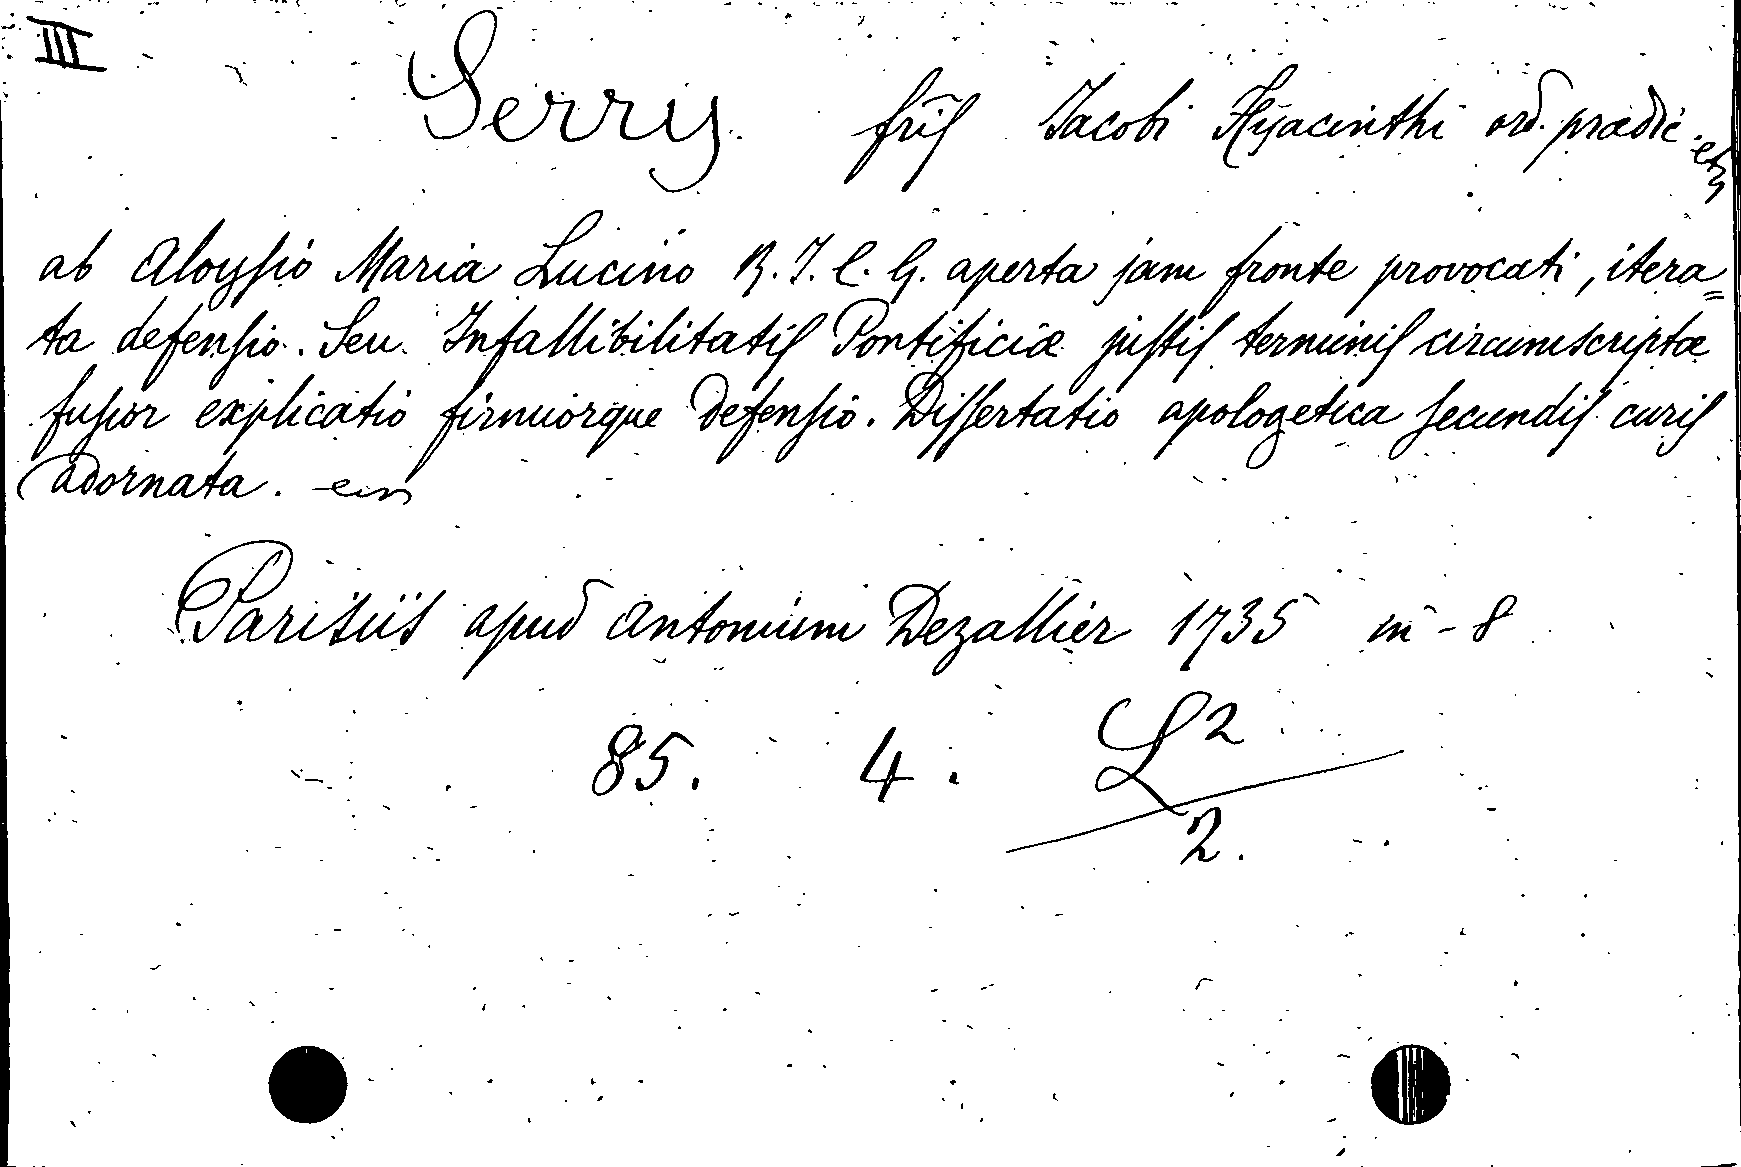 III
Serry fr̃is Jacobi Hyacinthi ord. prædic. etz
ab Aloysio Maria Lucino R. J. C. G. aperta jam fronte provocati, itera=
ta defensio. Seu Infallibilitatis Pontificiæ justis terminis circumscriptæ
fusior explicatio firmiorque defensio. Dissertatio apologetica secundis curis
adornata.
Parisiis apud Antonium Dezallier 1735 in-8
85. 4. L²
2.